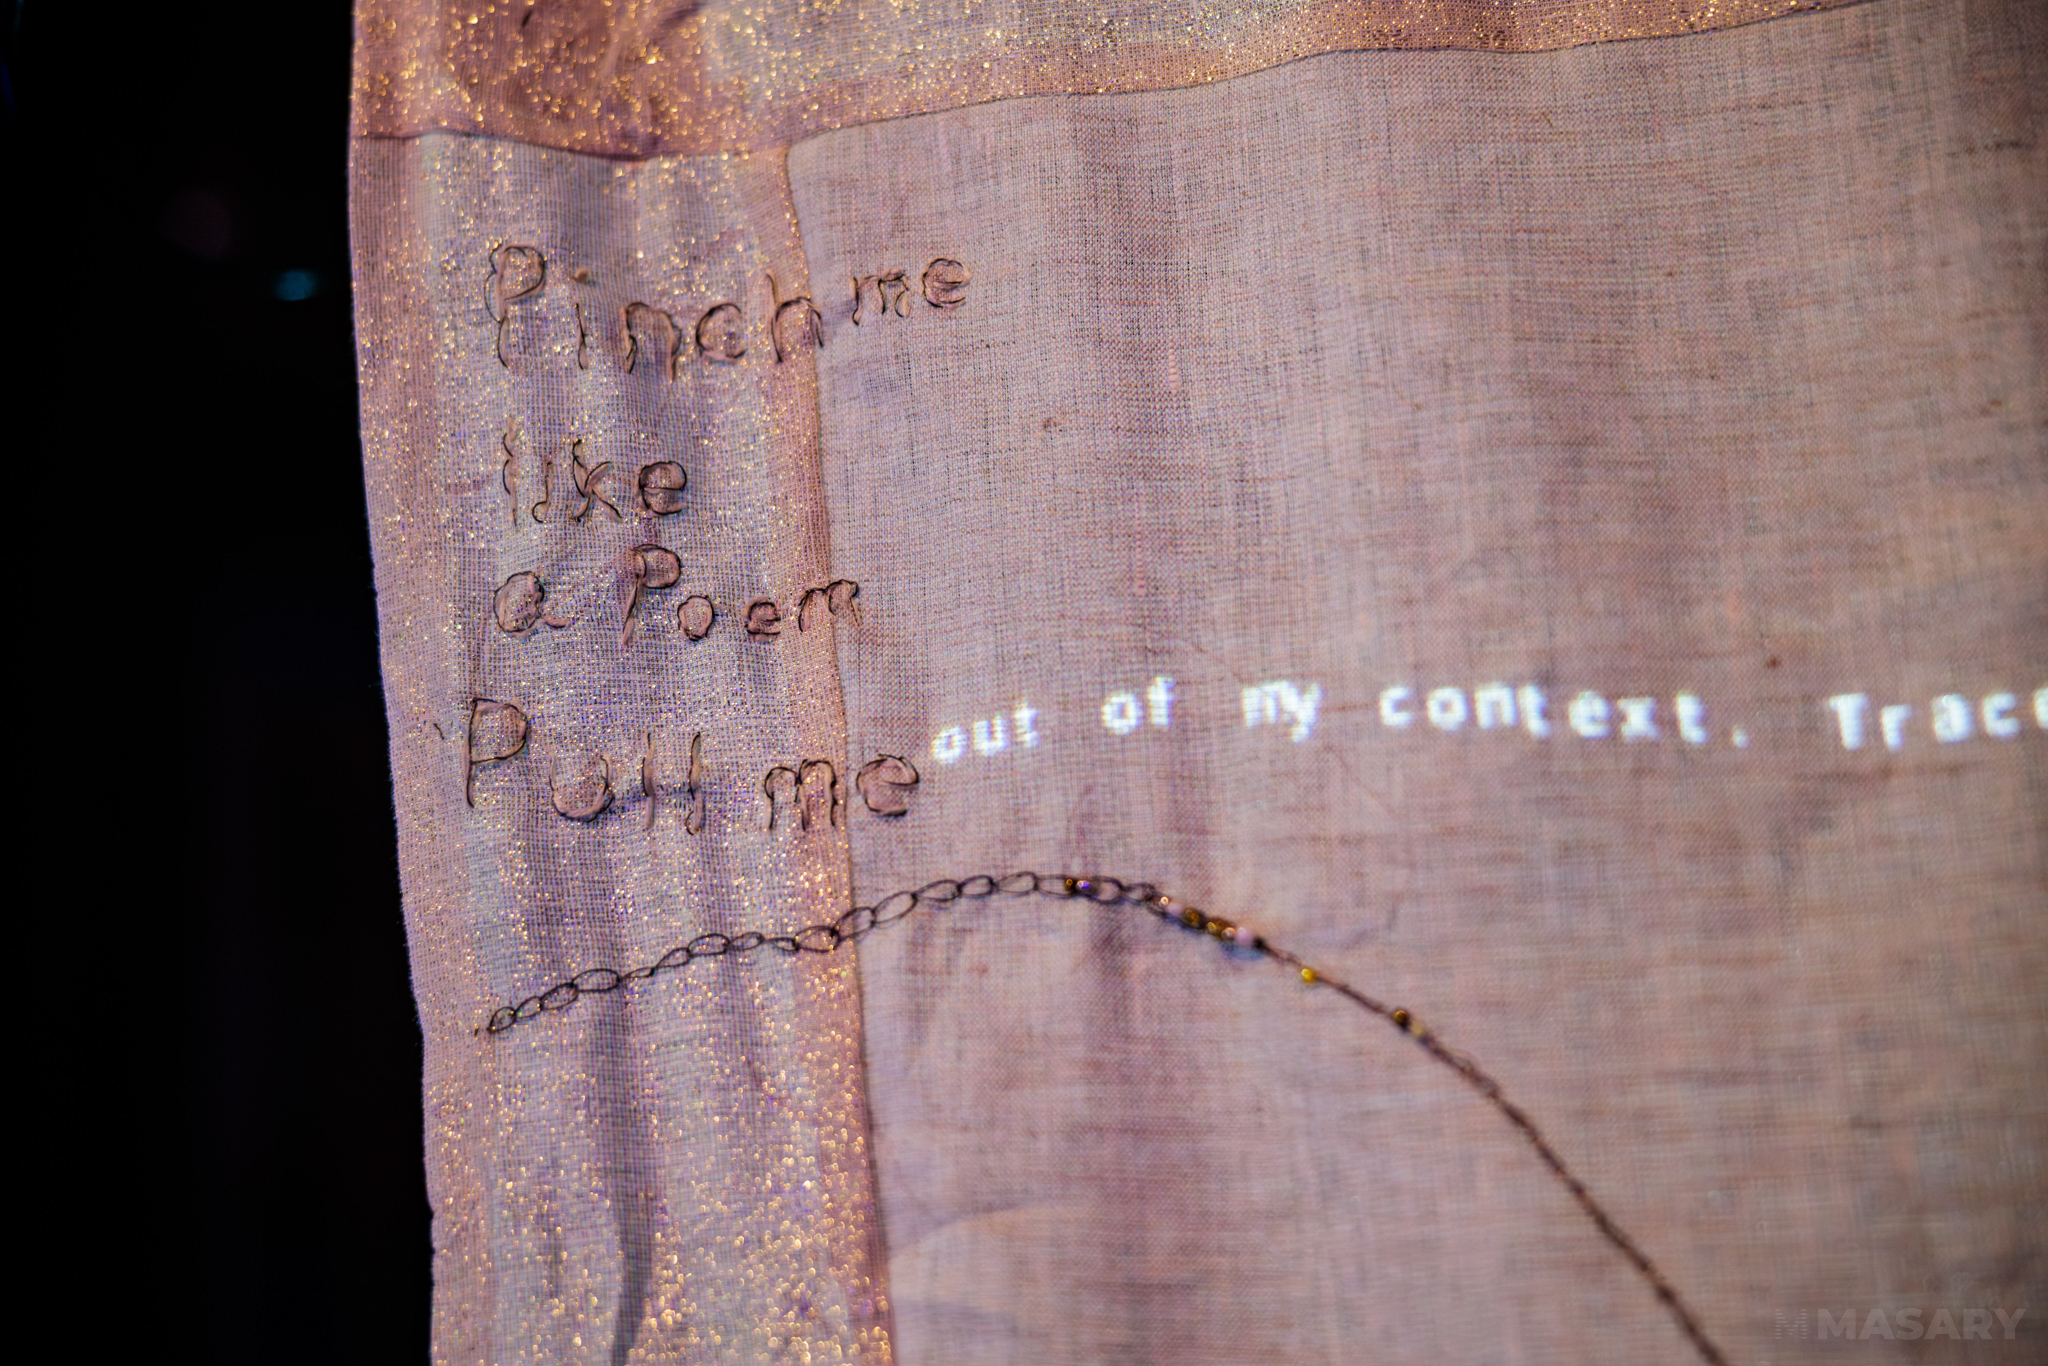 Pinch me
like
a Poem
Pull me out of my context. Trace
MASARY